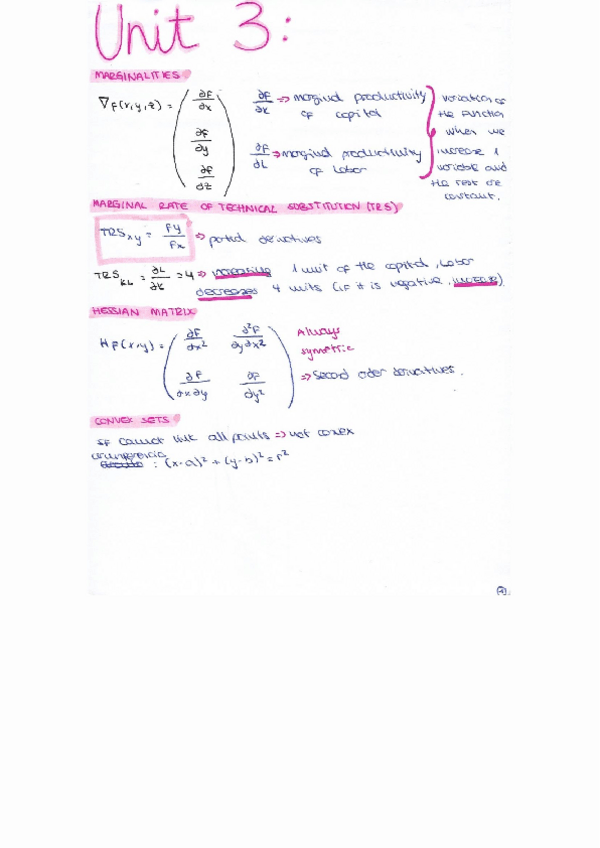 Unit 3:
MARGINALITIES
∇f(x,y,z) = ( ∂f/∂x ∂f/∂y ∂f/∂z )
∂f/∂K => marginal productivity of capital
∂f/∂L => marginal productivity of labor
variation of the function when we increase 1 variable and the rest are constant.
MARGINAL RATE OF TECHNICAL SUBSTITUTION (TRS)
TRS xy = fy/fx => partial derivatives
TRS KL = ∂L/∂K = 4 => increasing 1 unit of the capital, labor
decreases 4 units (if it is negative, increase)
HESSIAN MATRIX
Hf(x,y) = ( ∂f/∂x² ∂²f/∂y∂x² ∂f/∂x∂y ∂f/∂y² )
Always
symetric
=> Second oder derivatives.
CONVEX SETS
If cannot link all points => not conex
circunferencia : (x-a)² + (y-b)² = r²